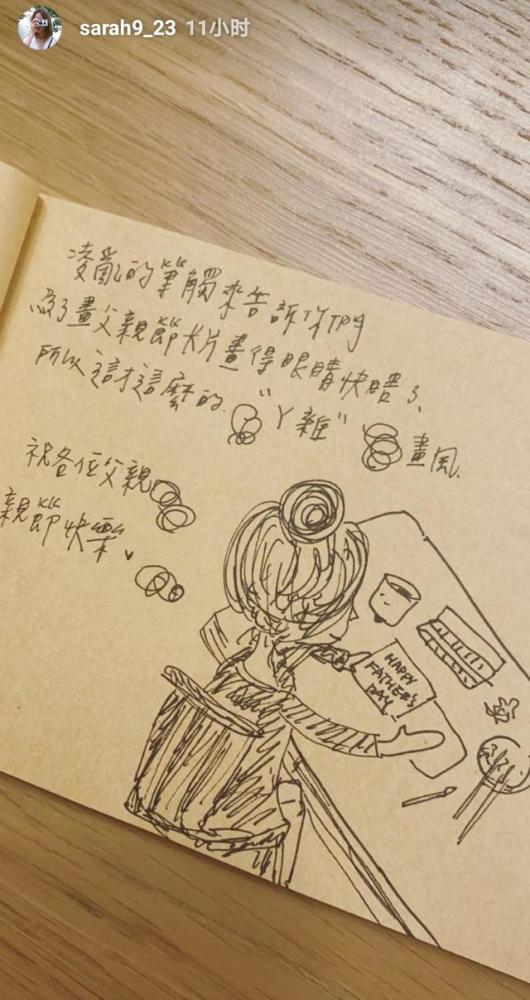 sarah9_23 11小时
凌亂的筆觸來告訴你們
為了畫父親節卡片畫得眼睛快瞎了、
所以這才這麼的 "ㄚ雜" 畫風.
祝各位父親
親節快樂
HAPPY
FATHER'S
DAY!